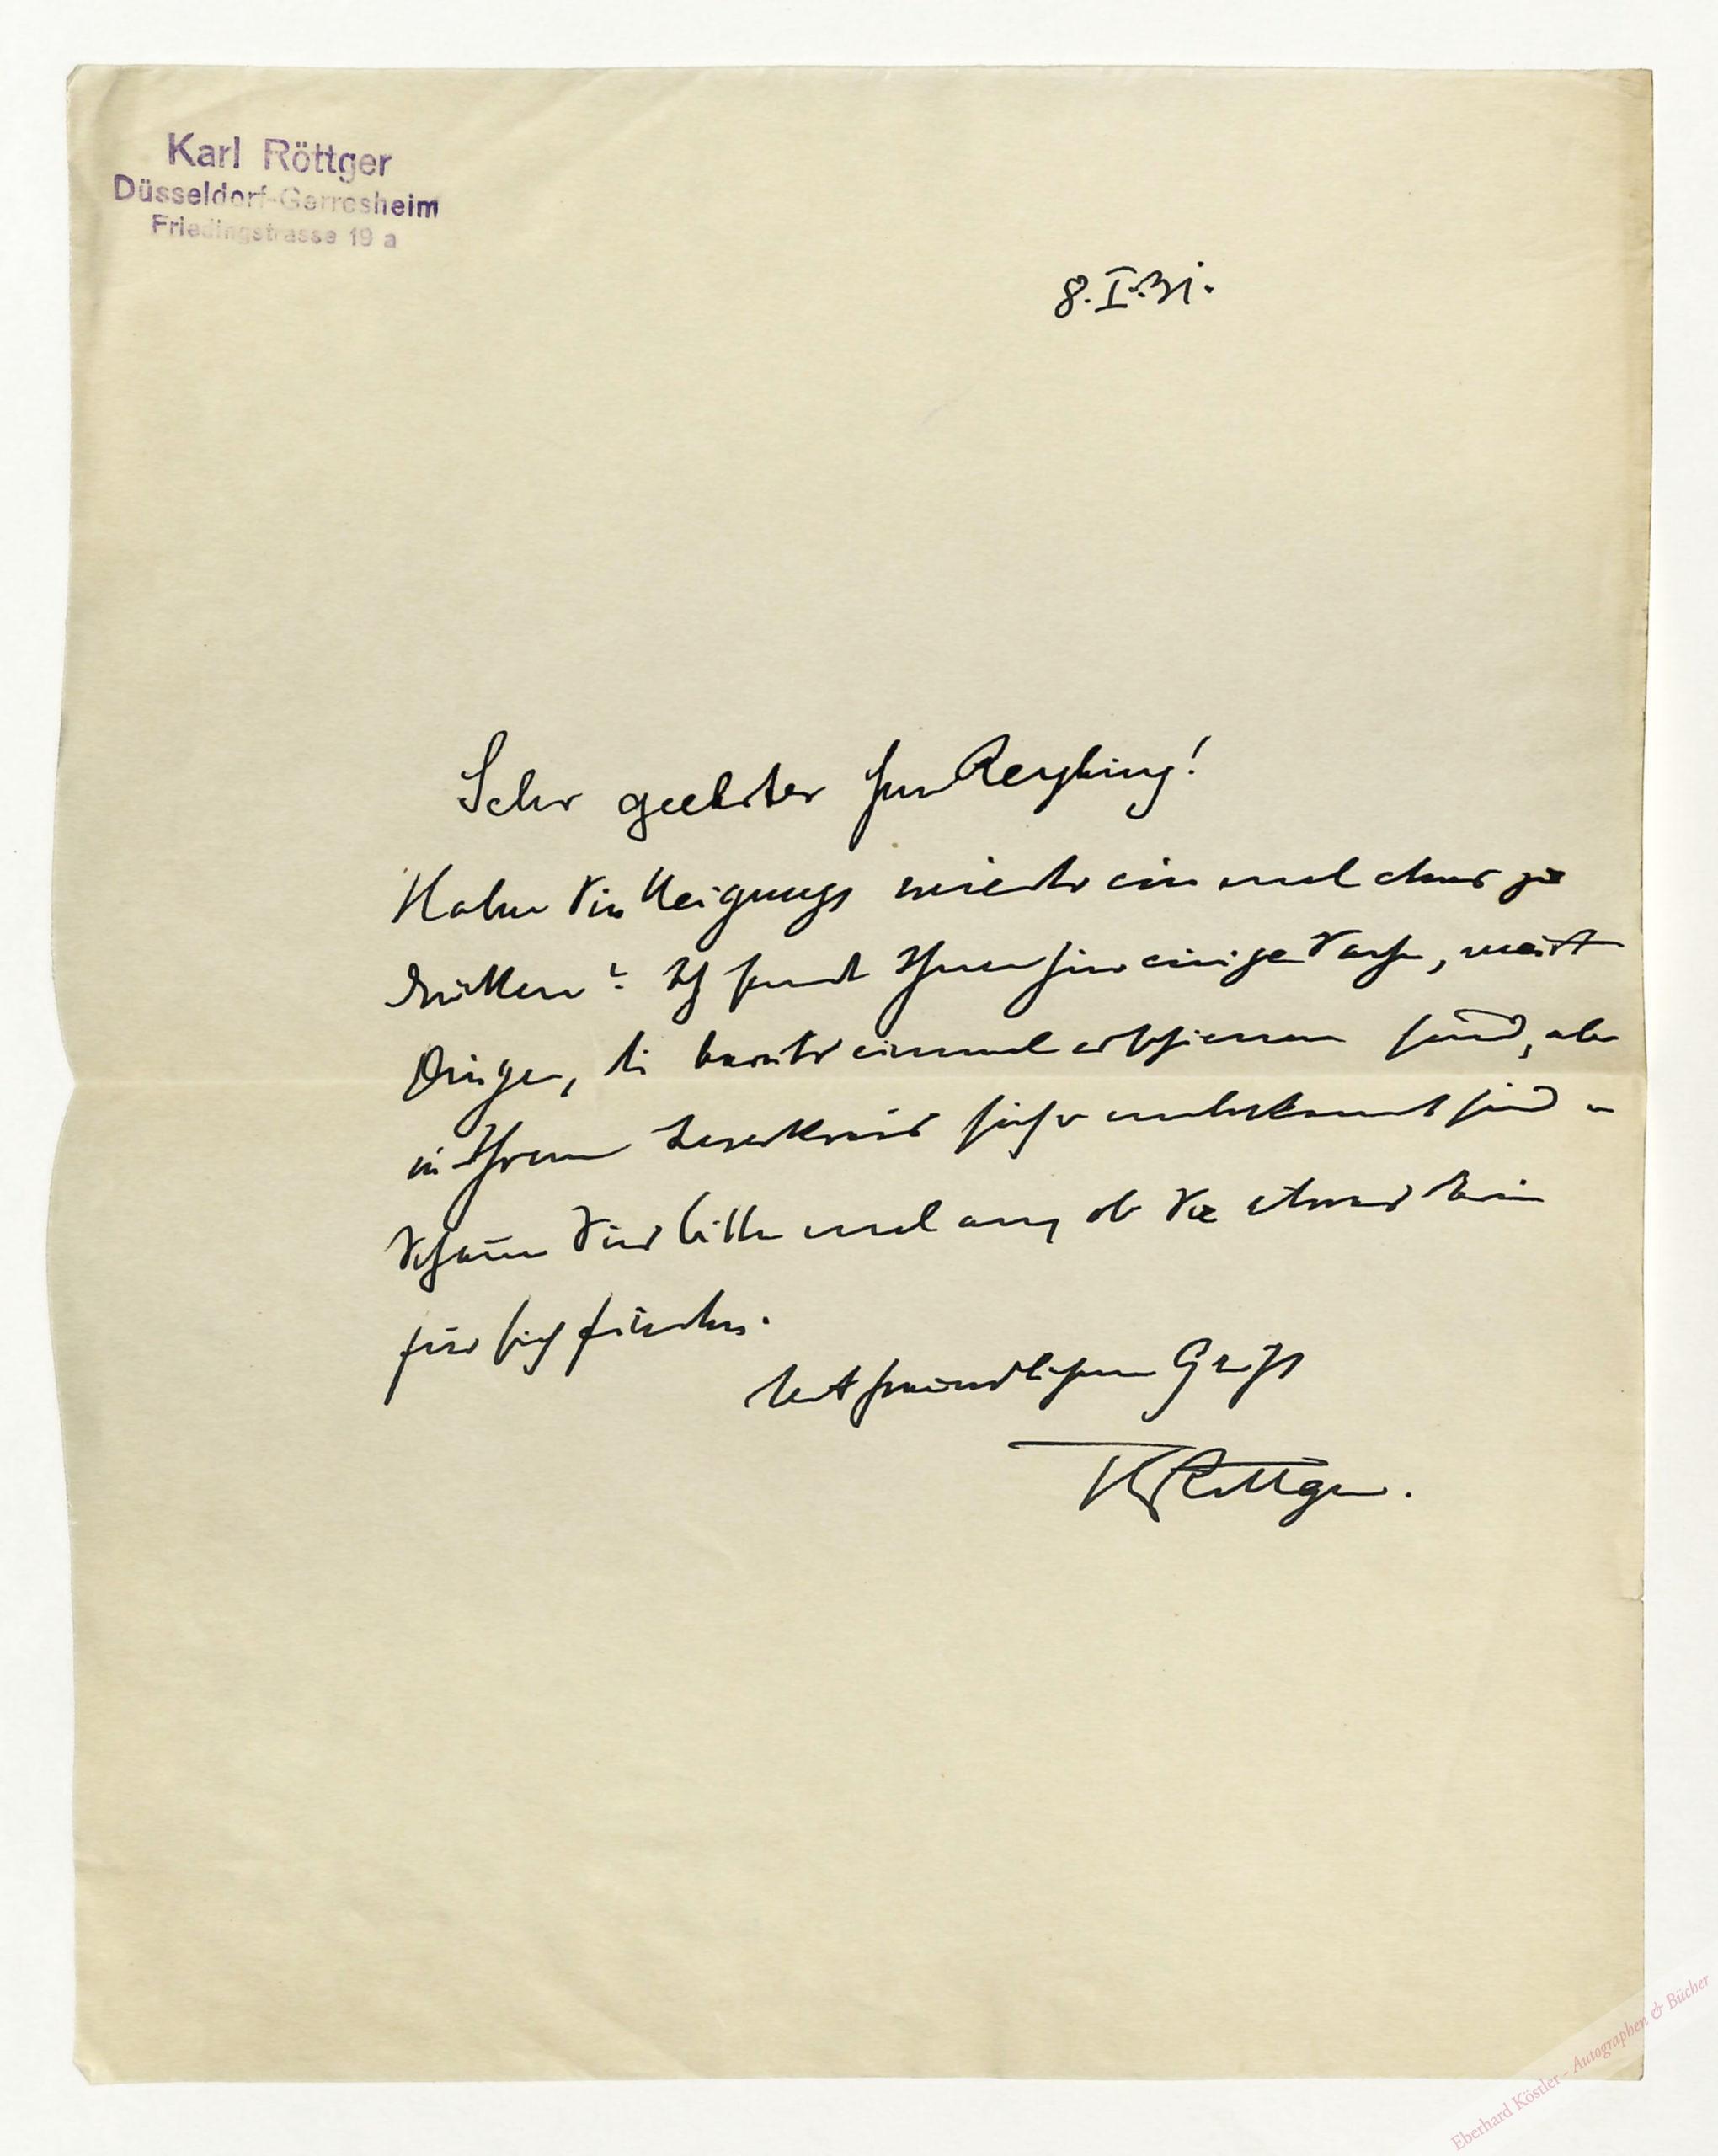 Karl Röttger
Düsseldorf-Gerresheim
Friedingstrasse 19 a
8.I.31.
Sehr geehrter Herr Reyhing!
Haben Sie Neigung, wieder einmal etwas zu
drucken? Ich sende Ihnen hier einige Sachen, meist
Dinge, die bereits einmal erschienen sind, aber
in Ihrem Leserkreis sicher unbekannt sind –
Schauen Sie bitte mal an, ob Sie etwas darin
für sich finden.
Mit freundlichem Gruß
K Röttger.
Eberhard Köstler - Autographen & Bücher